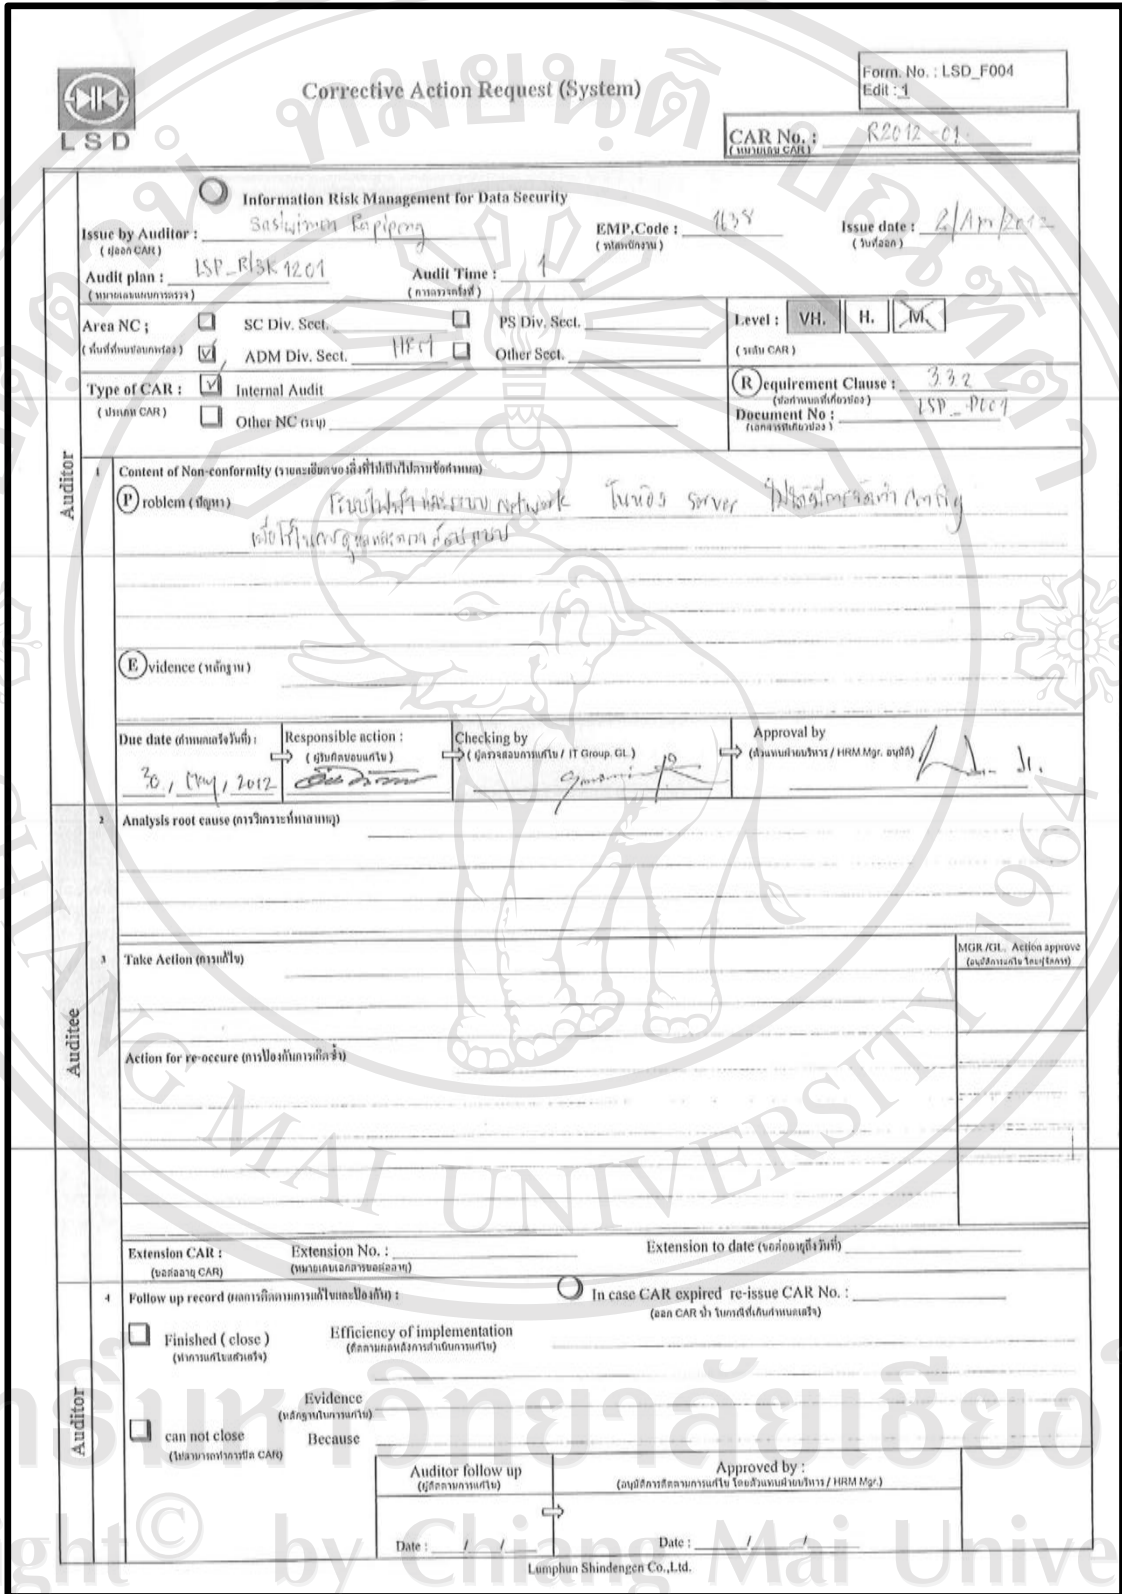 Form. No. : LSD_F004
Edit : 1
LSD
Corrective Action Request (System)
CAR No. : R2012-01
(หมายเลข CAR)
Information Risk Management for Data Security
Issue by Auditor :
(ผู้ออก CAR)
EMP.Code : 1638
(รหัสพนักงาน)
Issue date : 2/Apr/2012
(วันที่ออก)
Audit plan : LSP_RISK 1201
(หมายเลขแผนการตรวจ)
Audit Time : 1
(การตรวจครั้งที่)
Area NC ;
(พื้นที่ที่พบข้อบกพร่อง)
SC Div. Sect.
PS Div. Sect.
ADM Div. Sect. HRM
Other Sect.
Level : VH. H. M.
(ระดับ CAR)
Type of CAR :
(ประเภท CAR)
Internal Audit
Other NC (ระบุ)
(R)equirement Clause : 3.3.2
(ข้อกำหนดที่เกี่ยวข้อง)
Document No :
(เอกสารที่เกี่ยวข้อง)
Auditor
1 Content of Non-conformity (รายละเอียดของสิ่งที่ไม่เป็นไปตามข้อกำหนด)
(P)roblem (ปัญหา) ระบบไฟฟ้า และระบบ Network ในห้อง server
(E)vidence (หลักฐาน)
Due date (กำหนดเสร็จวันที่) :
30, May, 2012
Responsible action :
(ผู้รับผิดชอบแก้ไข)
Checking by
(ผู้ตรวจสอบการแก้ไข / IT Group. GL.)
Approval by
(ตัวแทนฝ่ายบริหาร / HRM Mgr. อนุมัติ)
Auditee
2 Analysis root cause (การวิเคราะห์หาสาเหตุ)
3 Take Action (การแก้ไข)
MGR /GL. Action approve
(อนุมัติการแก้ไข โดยผู้จัดการ)
Action for re-occure (การป้องกันการเกิดซ้ำ)
Extension CAR :
(ขอต่ออายุ CAR)
Extension No. :
(หมายเลขเอกสารขอต่ออายุ)
Extension to date (ขอต่ออายุถึงวันที่)
Auditor
4 Follow up record (ผลการติดตามการแก้ไขและป้องกัน) :
In case CAR expired re-issue CAR No. :
(ออก CAR ซ้ำ ในกรณีที่เกินกำหนดเสร็จ)
Finished ( close )
(ทำการแก้ไขแล้วเสร็จ)
Efficiency of implementation
(ติดตามผลหลังการดำเนินการแก้ไข)
Evidence
(หลักฐานในการแก้ไข)
can not close
(ไม่สามารถทำการปิด CAR)
Because
Auditor follow up
(ผู้ติดตามการแก้ไข)
Approved by :
(อนุมัติการติดตามการแก้ไข โดยตัวแทนฝ่ายบริหาร / HRM Mgr.)
Date : / /
Date : / /
Lumphun Shindengen Co.,Ltd.
CHIANG MAI UNIVERSITY 1964
ght © by Chiang Mai Unive